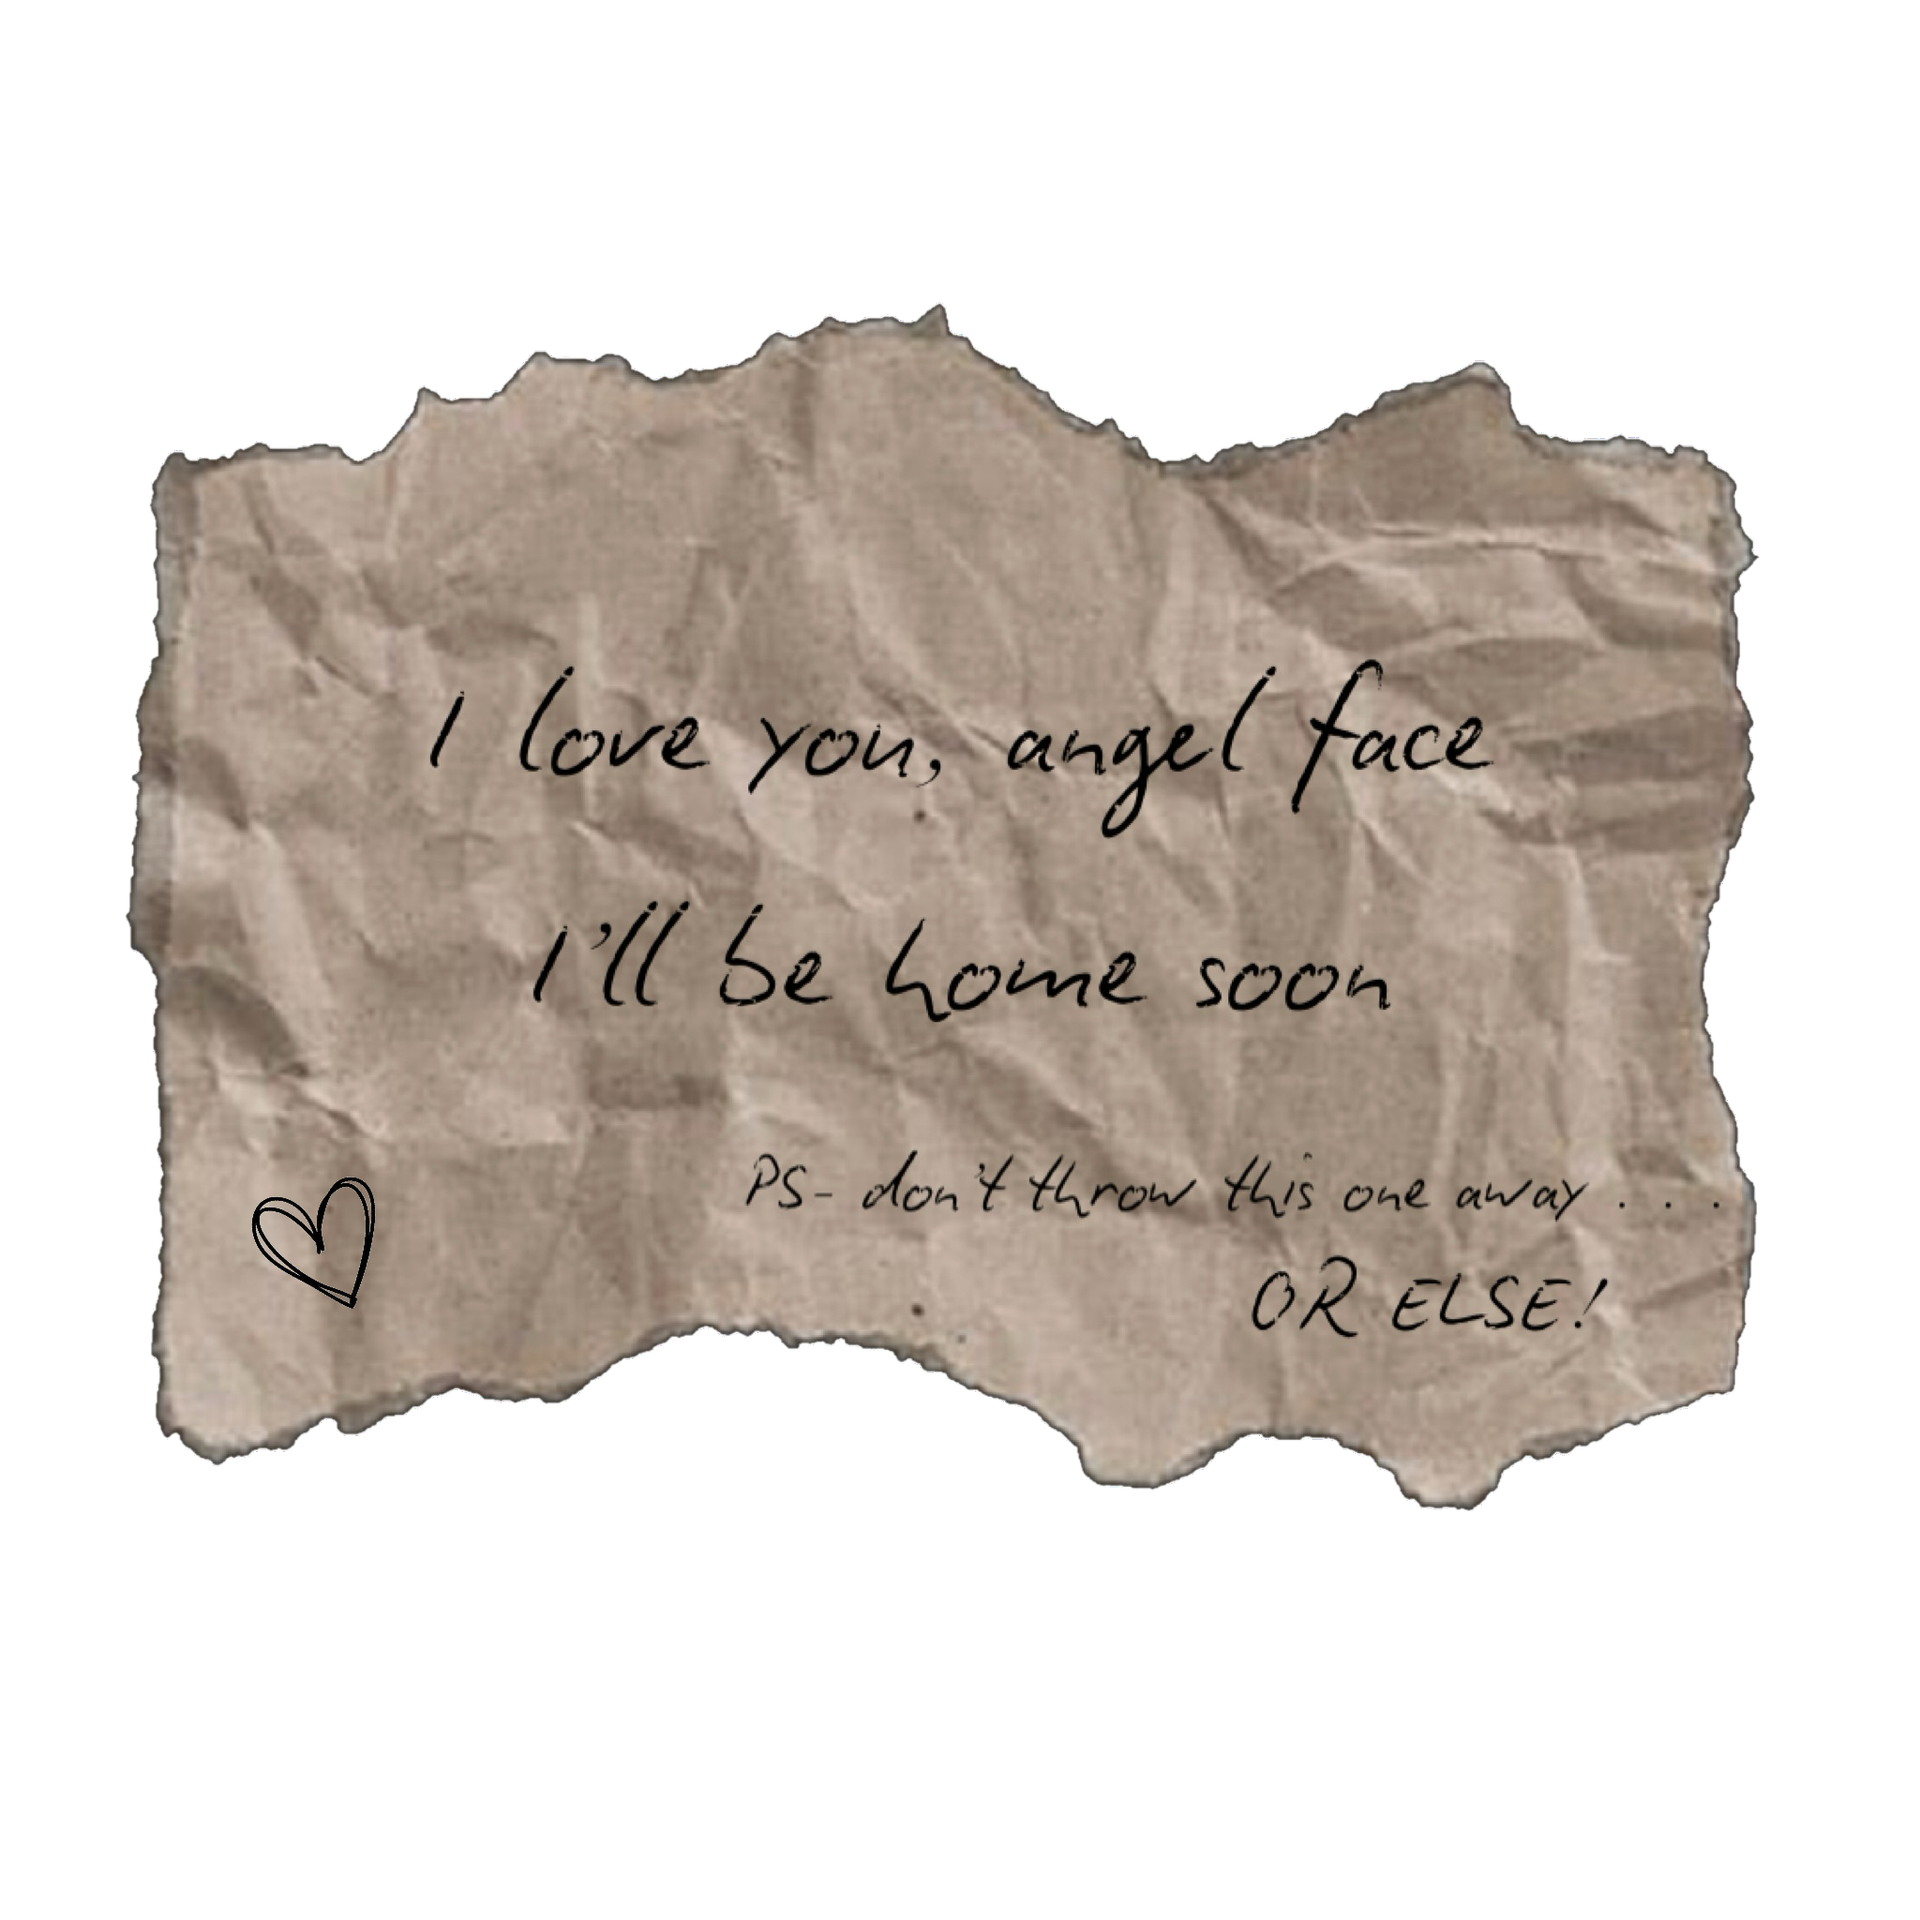 I love you, angel face
I'll be home soon
PS- don't throw this one away . . .
OR ELSE!